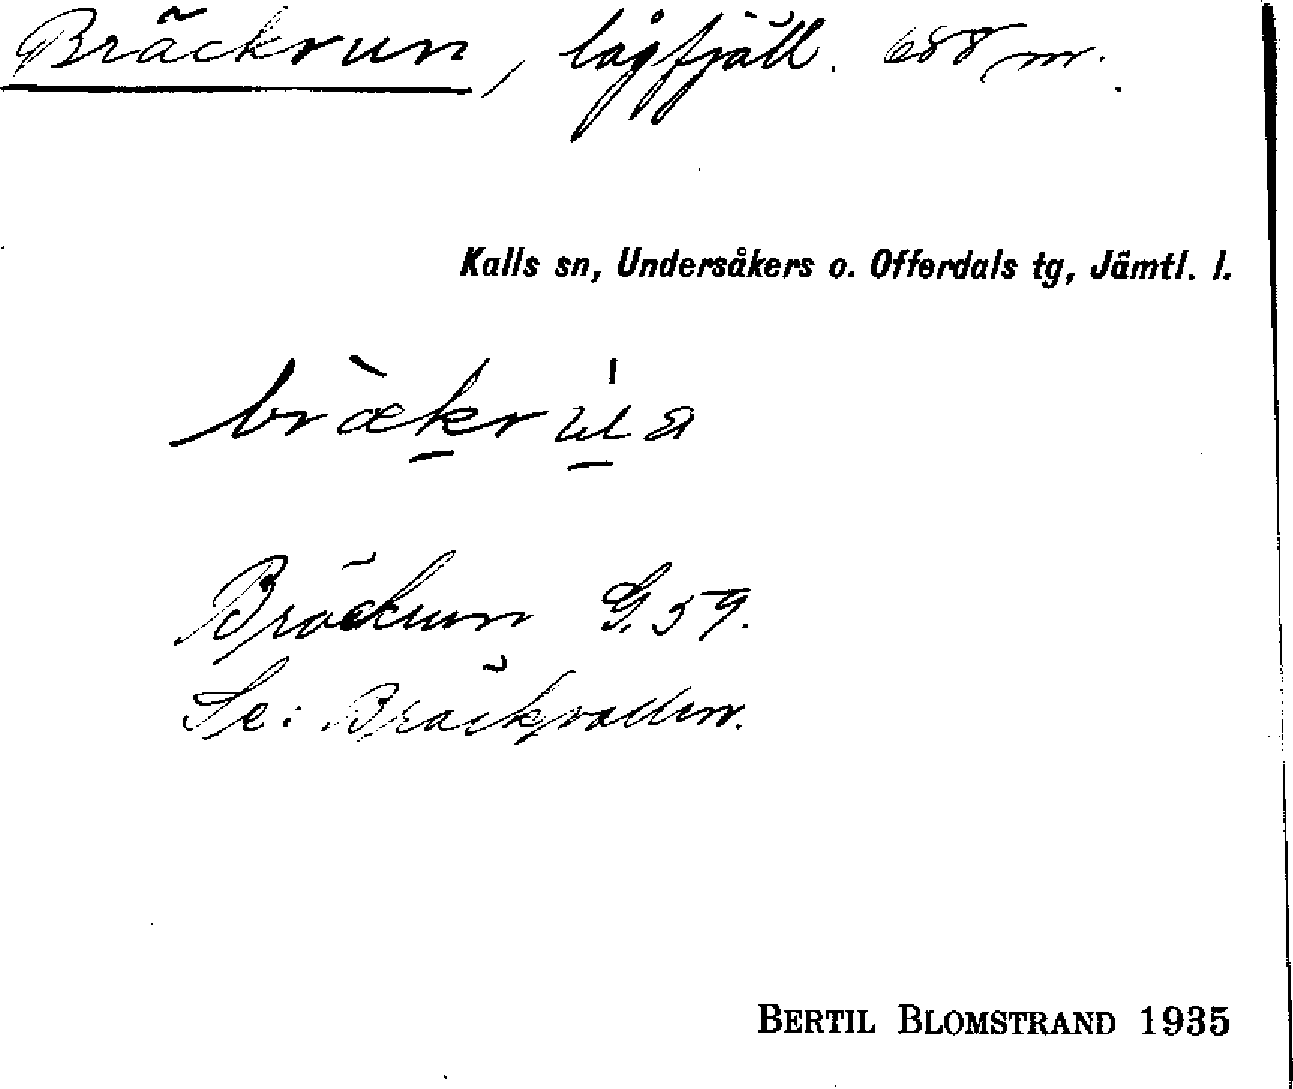 Bräckrun, lågfjäll. 688 m.
Kalls sn, Undersåkers o. Offerdals tg, Jämtl. l.
Bräckrun G. 59.
Se: Bräckvallen.
BERTIL BLOMSTRAND 1935